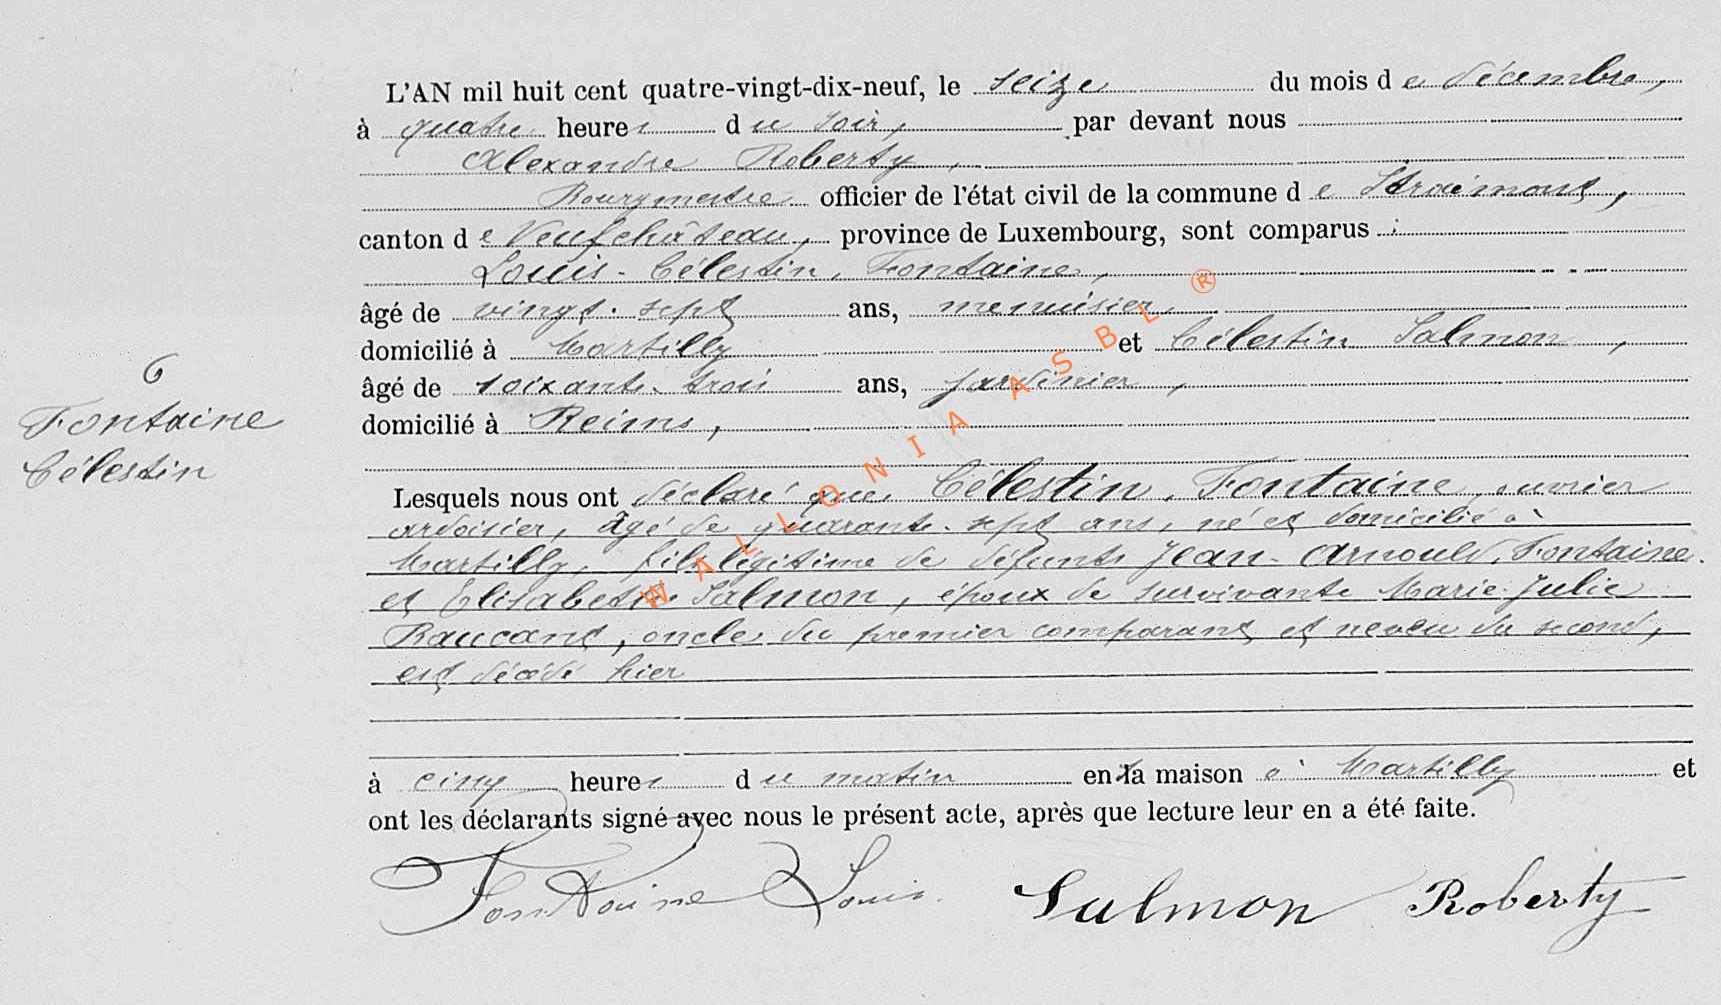 L'AN mil huit cent quatre-vingt-dix-neuf, le seize du mois de décembre,
à quatre heures du soir, par devant nous
Alexandre Roberty,
Bourgmestre officier de l'état civil de la commune de Straimont,
canton de Neufchâteau, province de Luxembourg, sont comparus :
Louis-Célestin, Fontaine,
âgé de vingt-sept ans, menuisier,
domicilié à Martilly et Célestin Salmon,
âgé de soixante-trois ans, jardinier,
domicilié à Reims,
6
Fontaine
Célestin
Lesquels nous ont déclaré que Célestin, Fontaine, ouvrier
ardoisier, âgé de quarante-sept ans, né et domicilié à
Martilly, fils légitime de défunts Jean-Arnould, Fontaine
et Elisabeth Salmon, époux de survivante Marie-Julie
Raucant, oncle du premier comparant et neveu du second,
est décédé hier
à cinq heures du matin en la maison à Martilly et
ont les déclarants signé avec nous le présent acte, après que lecture leur en a été faite.
Fontaine Louis Salmon Roberty
WALLONIA ASBL ®